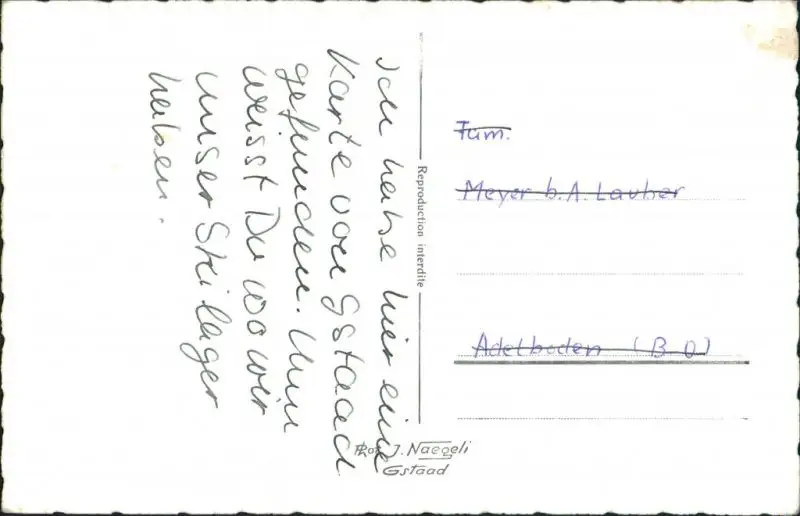 Ich habe hier eine
Karte von Gstaad
gefunden. Nun
weisst Du wo wir
unser Skilager
haben.
Reproduction interdite
Fam.
Meyer b. A. Lauber
Adelboden (BO)
Phot. J. Naegeli
Gstaad